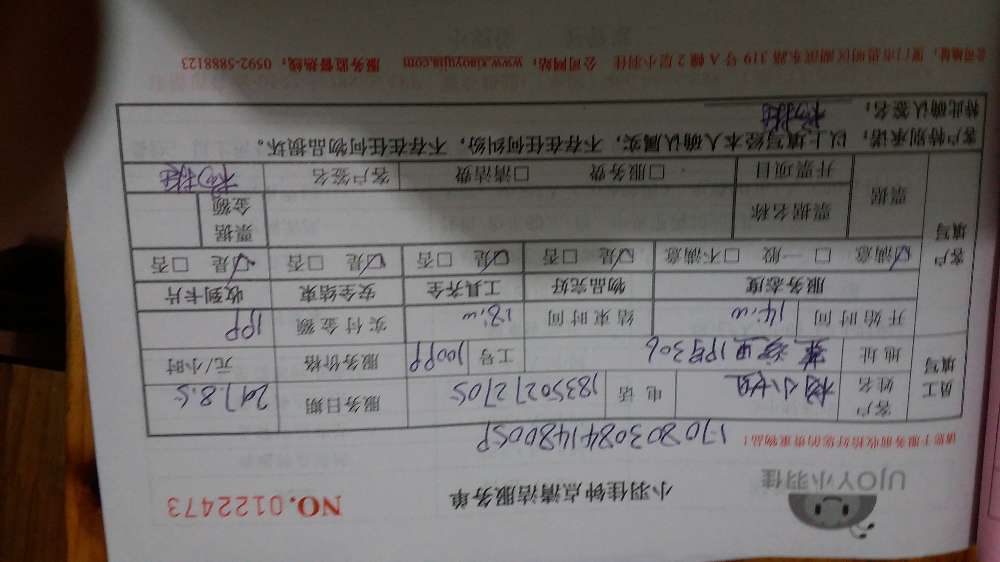 UjOY小羽佳
小羽佳钟点清洁服务单
NO.0122473
请您于服务前收拾好您的贵重物品！
员工填写
客户姓名 杨小姐 电话 18350272705 服务日期 2017.8.5
地址 工号 服务价格 元/小时
开始时间 14:00 结束时间 18:00 实付金额
客户填写
服务态度 物品完好 工具齐全 安全结束 收到卡片
☑满意 □一般 □不满意 ☑是 □否 ☑是 □否 ☑是 □否 ☑是 □否
票据 票据名称 票据金额
开票项目 □服务费 □清洁费 客户签名
客户特别承诺：以上填写经本人确认属实，不存在任何纠纷，不存在任何物品损坏。
特此确认签名：
公司地址：厦门市思明区湖滨东路 319 号 A 幢 2 层小羽佳 公司网站：www.xiaoyujia.com 服务监督热线：0592-5888123